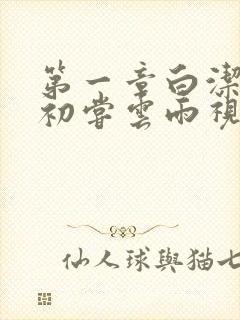 第一章白潔
初嘗雲雨視
仙人球與猫七